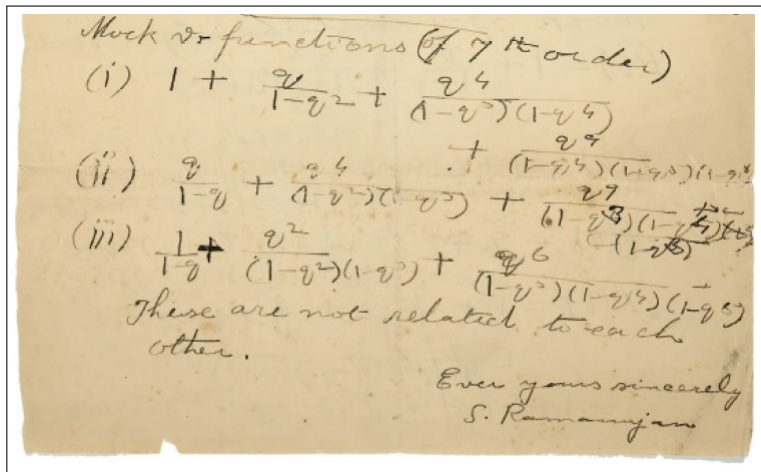 Mock ϑ functions (of 7th order)
(i) 1 + q/(1-q²) + q⁴/((1-q³)(1-q⁴))
+ q⁹/((1-q⁴)(1-q⁵)(1-q⁶))
(ii) q/(1-q) + q⁴/((1-q²)(1-q³)) + q⁹/((1-q³)(1-q⁴)
(1-q⁵))
(iii) 1/(1-q) + q²/((1-q²)(1-q³)) + q⁶/((1-q³)(1-q⁴)(1-q⁵))
These are not related to each
other.
Ever yours sincerely
S. Ramanujan